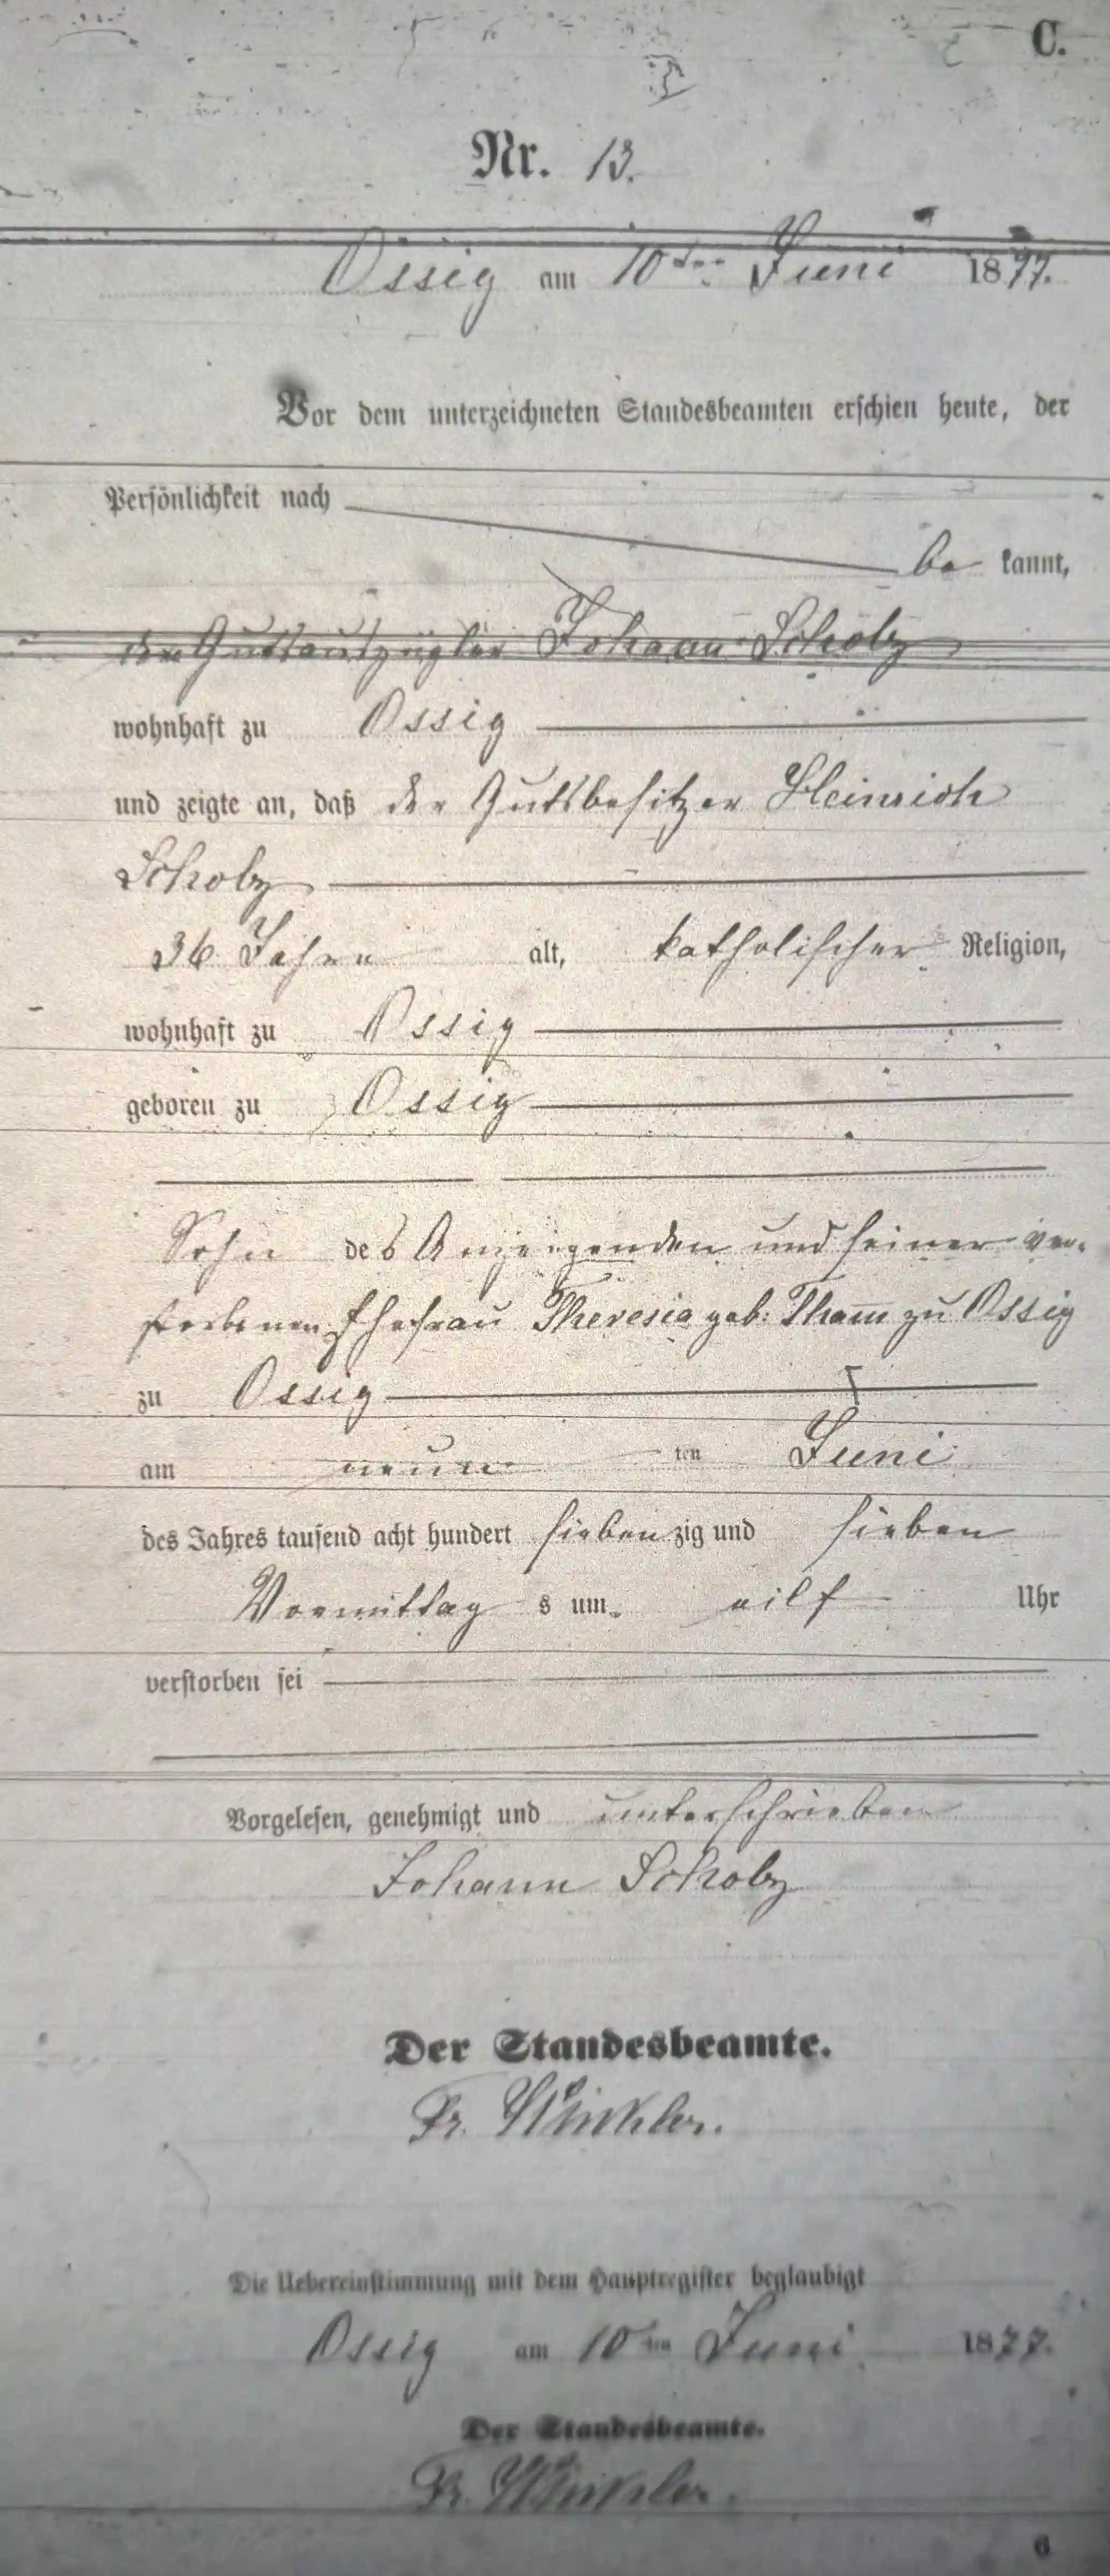 C.
Nr. 13.
Ossig am 10ten Juni 1877.
Vor dem unterzeichneten Standesbeamten erschien heute, der
Persönlichkeit nach
be kannt,
der Gutsauszügler Johann Scholz
wohnhaft zu Ossig
und zeigte an, daß der Gutsbesitzer Heinrich
Scholz
36 Jahre alt, katholischer Religion,
wohnhaft zu Ossig
geboren zu Ossig
Sohn des Anzeigenden und seiner ver-
storbenen Ehefrau Theresia geb: Tham zu Ossig
zu Ossig
am neun ten Juni
des Jahres tausend acht hundert sieben zig und sieben
Vormittag s um eilf Uhr
verstorben sei
Vorgelesen, genehmigt und unterschrieben
Johann Scholz
Der Standesbeamte.
Fr. Winkler.
Die Uebereinstimmung mit dem Hauptregister beglaubigt
Ossig am 10ten Juni 1877.
Der Standesbeamte.
Fr. Winkler.
6